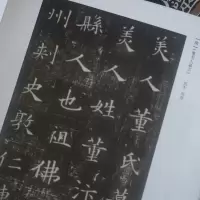 美人董氏墓
美人姓董汴
縣人也祖佛
州刺史敦仁